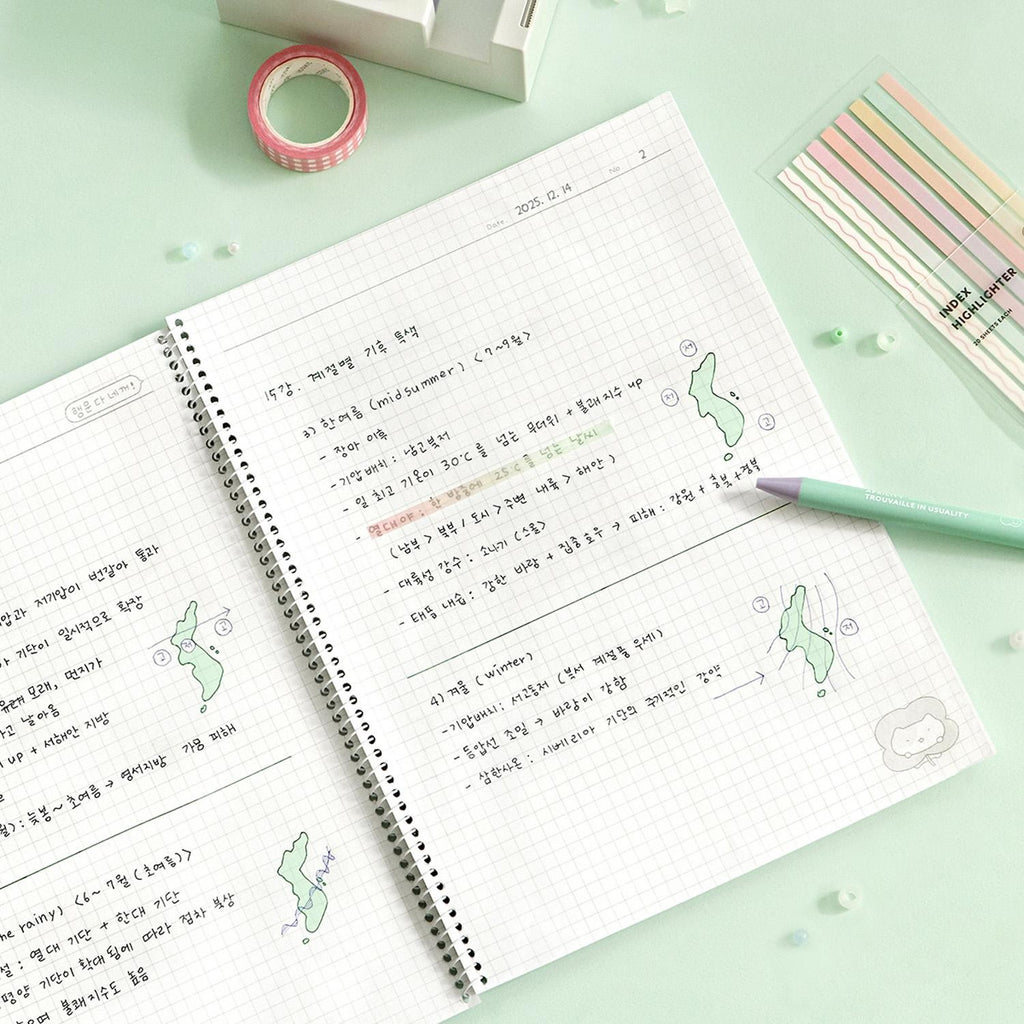 행운 다 네게!
압과 저기압이 번갈아 통과
기단이 일시적으로 확장
모래, 먼지가
고 날아옴
up + 서해안 지방
월) : 늦봄~초여름 → 영서지방 가뭄 피해
고 저 고
he rainy) <6~7월 (초여름)>
설 : 열대 기단 + 한대 기단
평양 기단이 확대됨에 따라 점차 북상
으며 불쾌지수도 높음
Date 2025. 12. 14 No 2
15강. 계절별 기후 특색
3) 한여름 (midsummer) <7~9월>
- 장마 이후
- 기압배치 : 남고북저
- 일 최고 기온이 30℃를 넘는 무더위 + 불쾌지수 up
- 열대야 : 한 밤중에 25℃를 넘는 날씨
(남부 > 북부 / 도시 > 주변 내륙 > 해안)
- 대륙성 강수 : 소나기 (스콜)
- 태풍 내습 : 강한 바람 + 집중호우 → 피해 : 강원 + 충북 + 경북
저
저
고
4) 겨울 (winter)
- 기압배치 : 서고동저 (북서 계절풍 우세)
- 등압선 조밀 → 바람이 강함
- 삼한사온 : 시베리아 기단의 주기적인 강약
고
저
INDEX
HIGHLIGHTER
20 SHEETS EACH
TROUVAILLE IN USUALITY